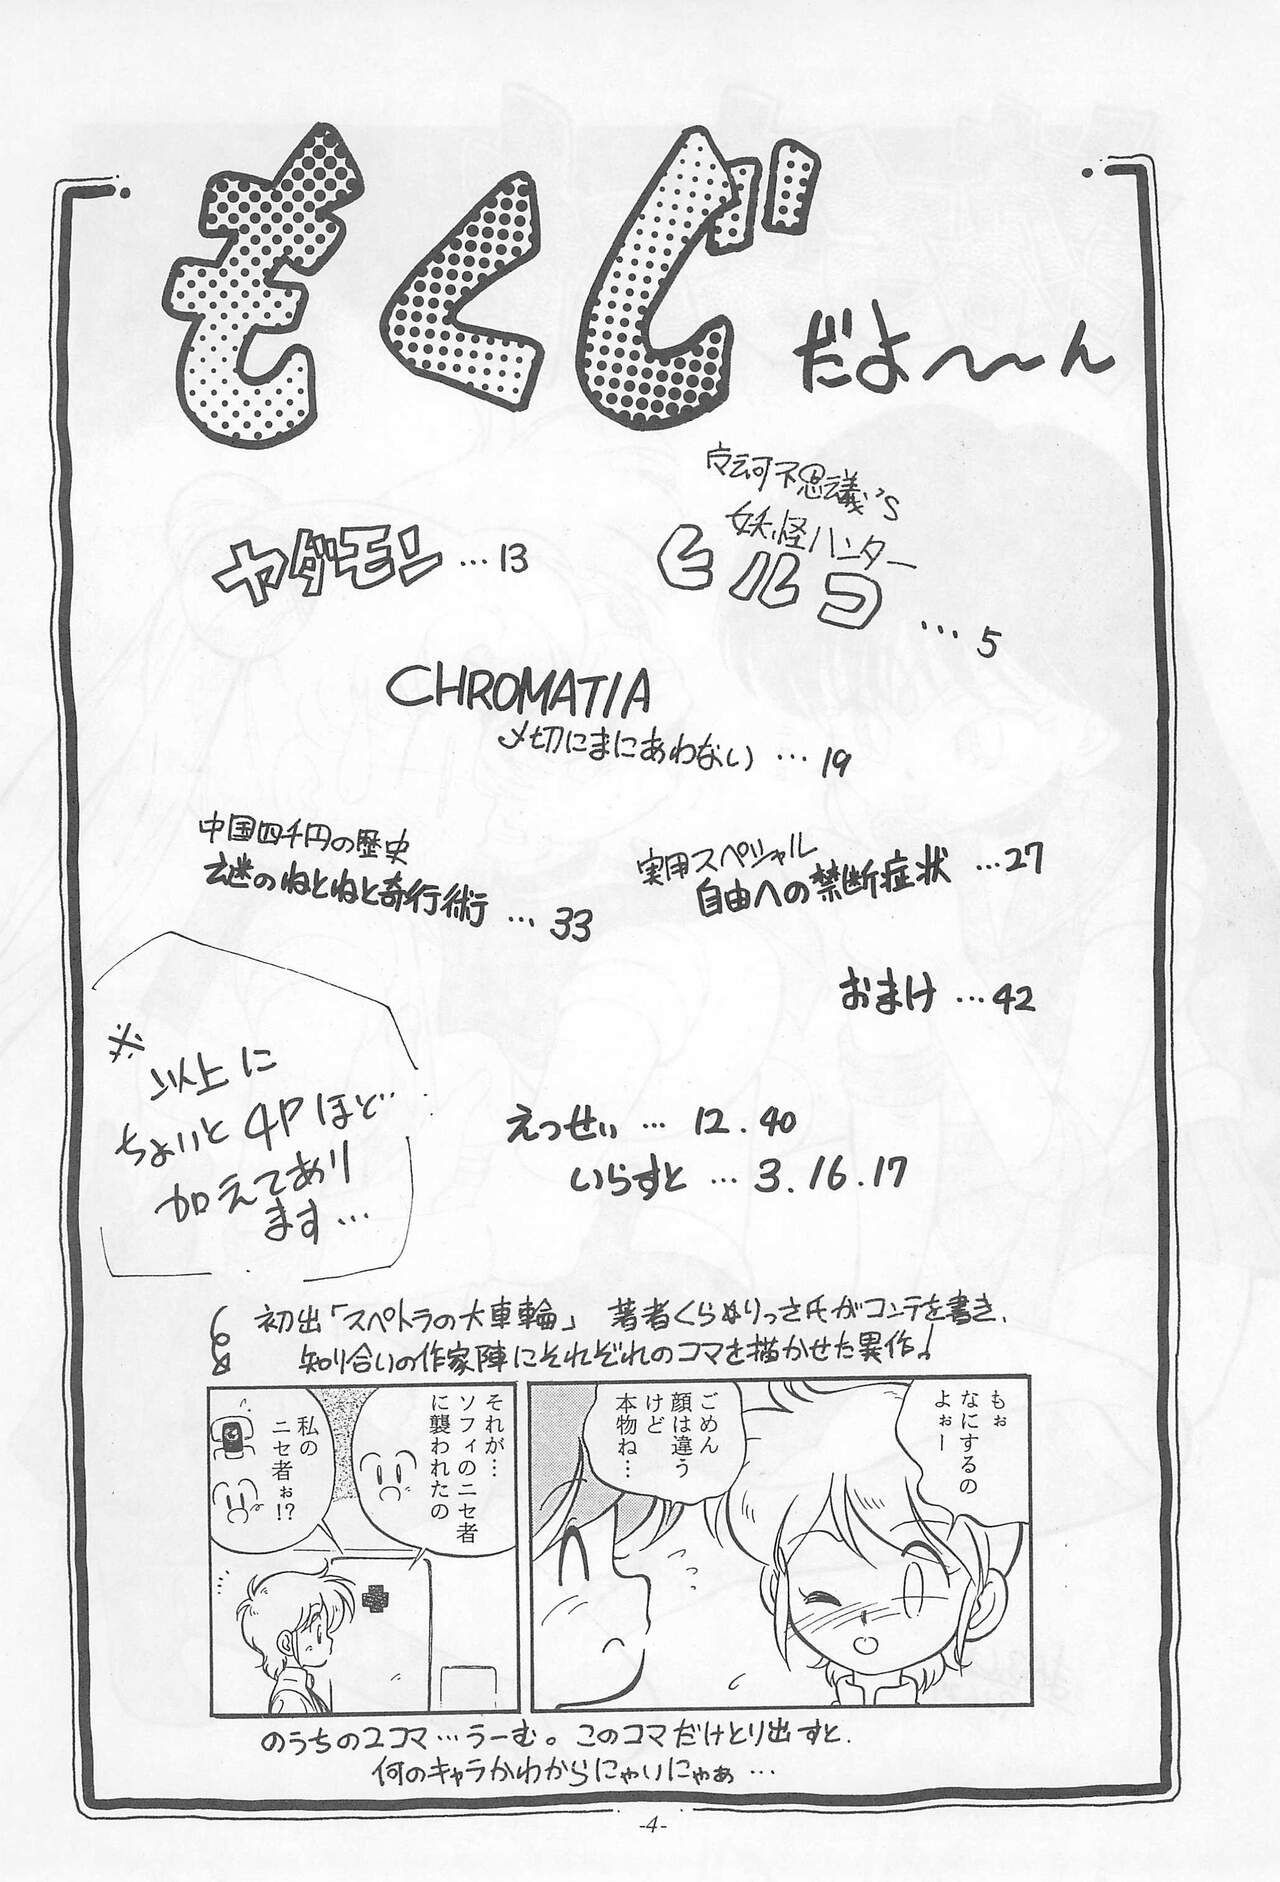 もくじ
だよ〜〜ん
妖怪ハンター
ヒルコ …5
ヤダモン …13
CHROMATIA
〆切にまにあわない …19
実用スペシャル
自由への禁断症状 …27
中国四千円の歴史
謎のねとねと奇行術 …33
おまけ …42
えっせぃ … 12.40
いらすと … 3.16.17
※以上に
ちょいと4Pほど
加えてあり
ます…
初出「スペトラの大車輪」 著者くらぬりっさ氏がコンテを書き、
知り合いの作家陣にそれぞれのコマを描かせた異作!
もぉ
なにするの
よぉー
ごめん
顔は違う
けど
本物ね…
それが…
ソフィのニセ者
に襲われたの
私の
ニセ者ぉ!?
のうちの2コマ…うーむ。このコマだけとり出すと、
何のキャラかわからにゃいにゃぁ…
-4-